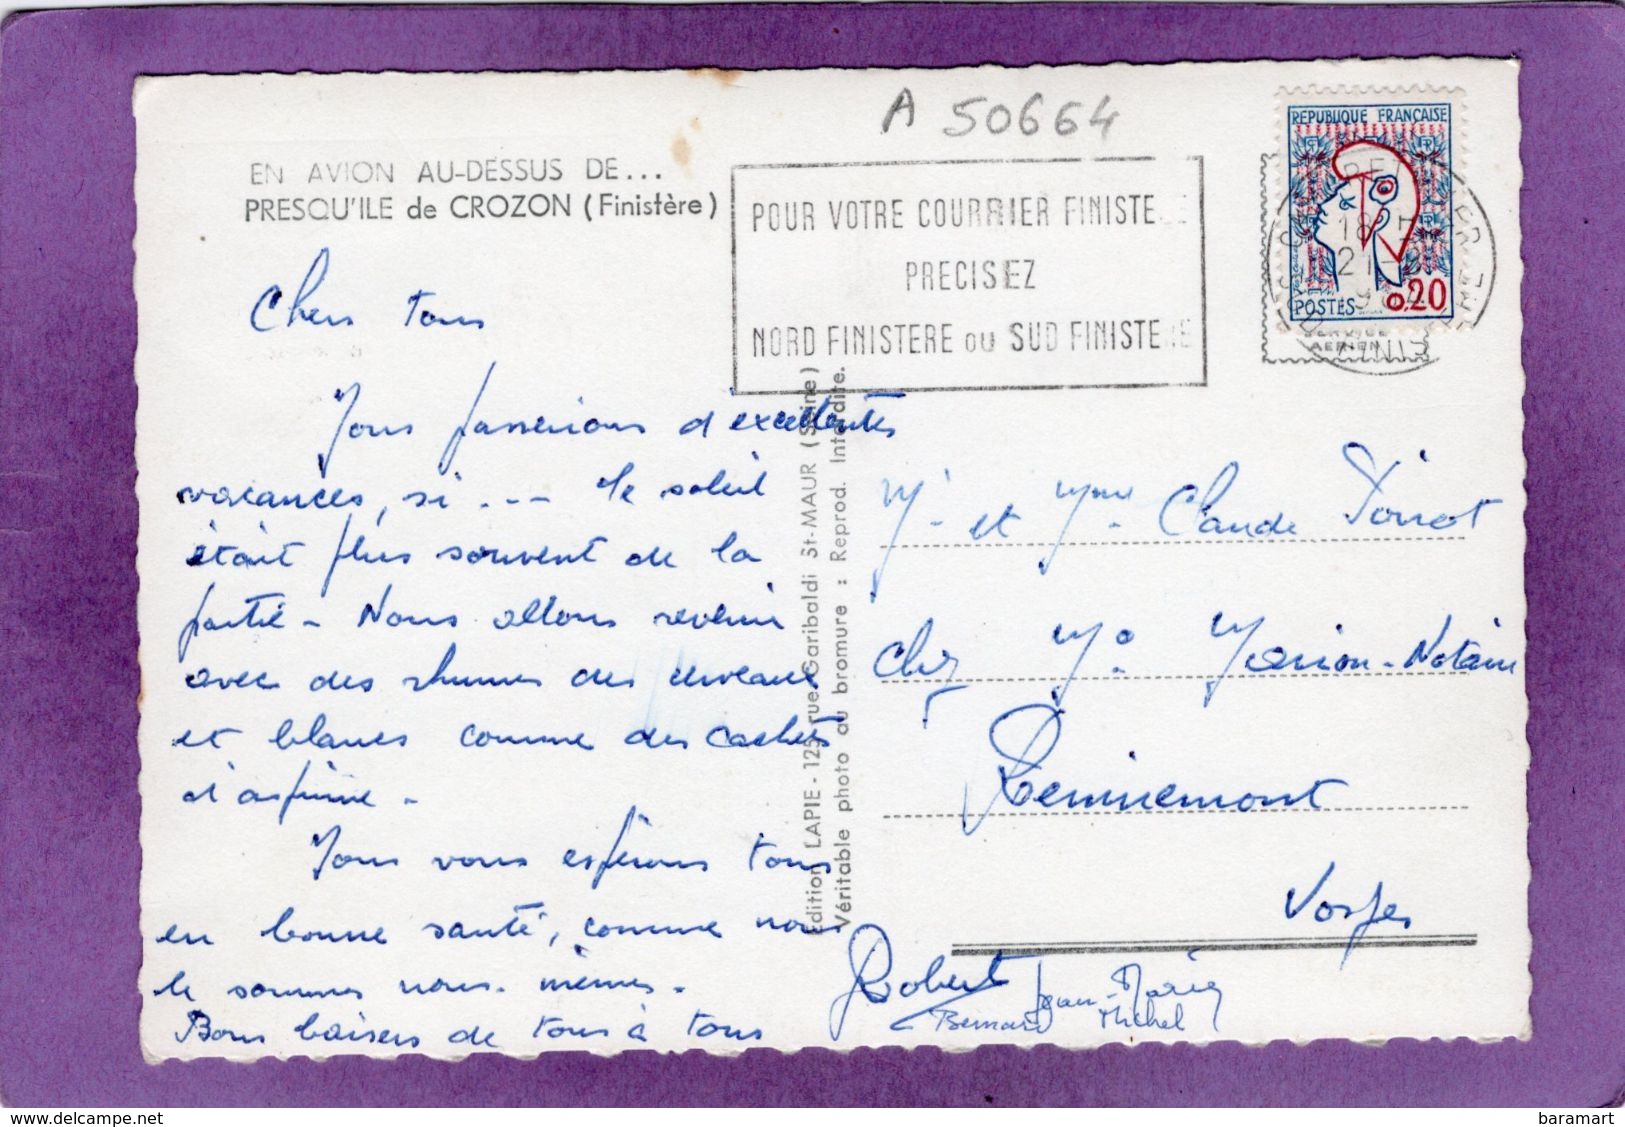 A 50664
EN AVION AU-DESSUS DE...
PRESQU'ILE de CROZON (Finistère)
POUR VOTRE COURRIER FINISTE
PRECISEZ
NORD FINISTERE OU SUD FINISTE
REPUBLIQUE FRANÇAISE
POSTES
0,20
AERIEN
18
21-8
Chers tous
Nous passerions d'excellentes
vacances, si --- le soleil
était plus souvent de la
partie - Nous allons revenir
avec des rhumes des cerveaux
et blancs comme des cachets
d'aspirine.
Nous vous espérons tous
en bonne santé, comme nous
le sommes nous-mêmes.
Bons baisers de tous à tous
Robert
Jean-Marie
Bernard Michel
Edition LAPIE - 125, rue Garibaldi St-MAUR (Seine)
Véritable photo au bromure : Reprod. Interdite.
Mr et Mme Claude
chez Me Marion - Notaire
Remiremont
Vosges
baramart